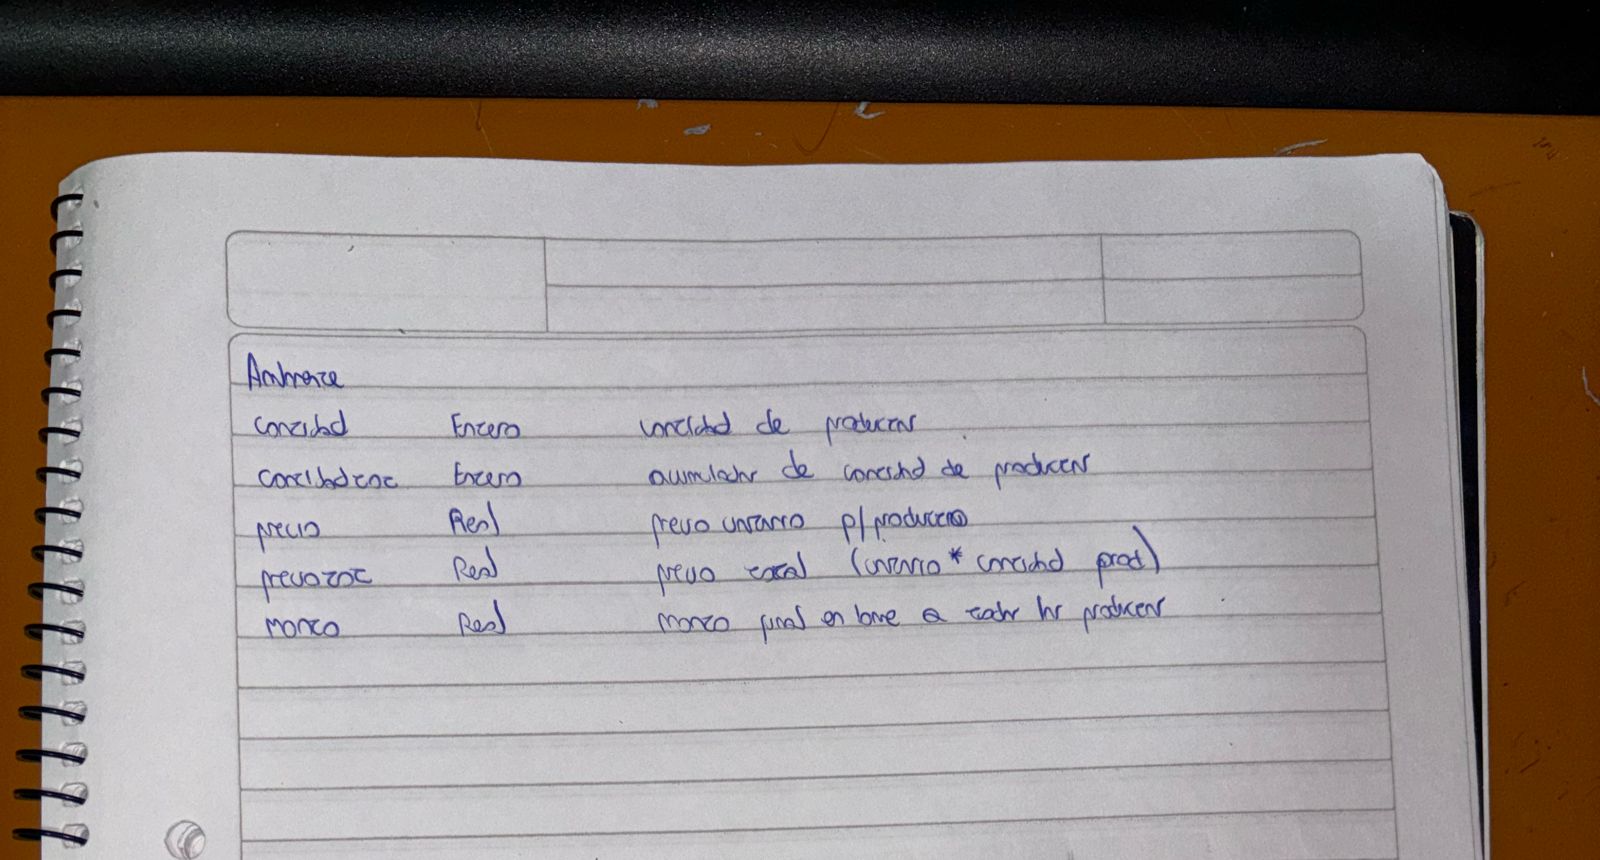 Ambiente
cantidad Entero cantidad de productos
cantidadtot Entero acumulador de cantidad de productos
precio Real precio unitario p/producto
preciotot Real precio total (unitario * cantidad prod)
monto Real monto final en base a todos los productos